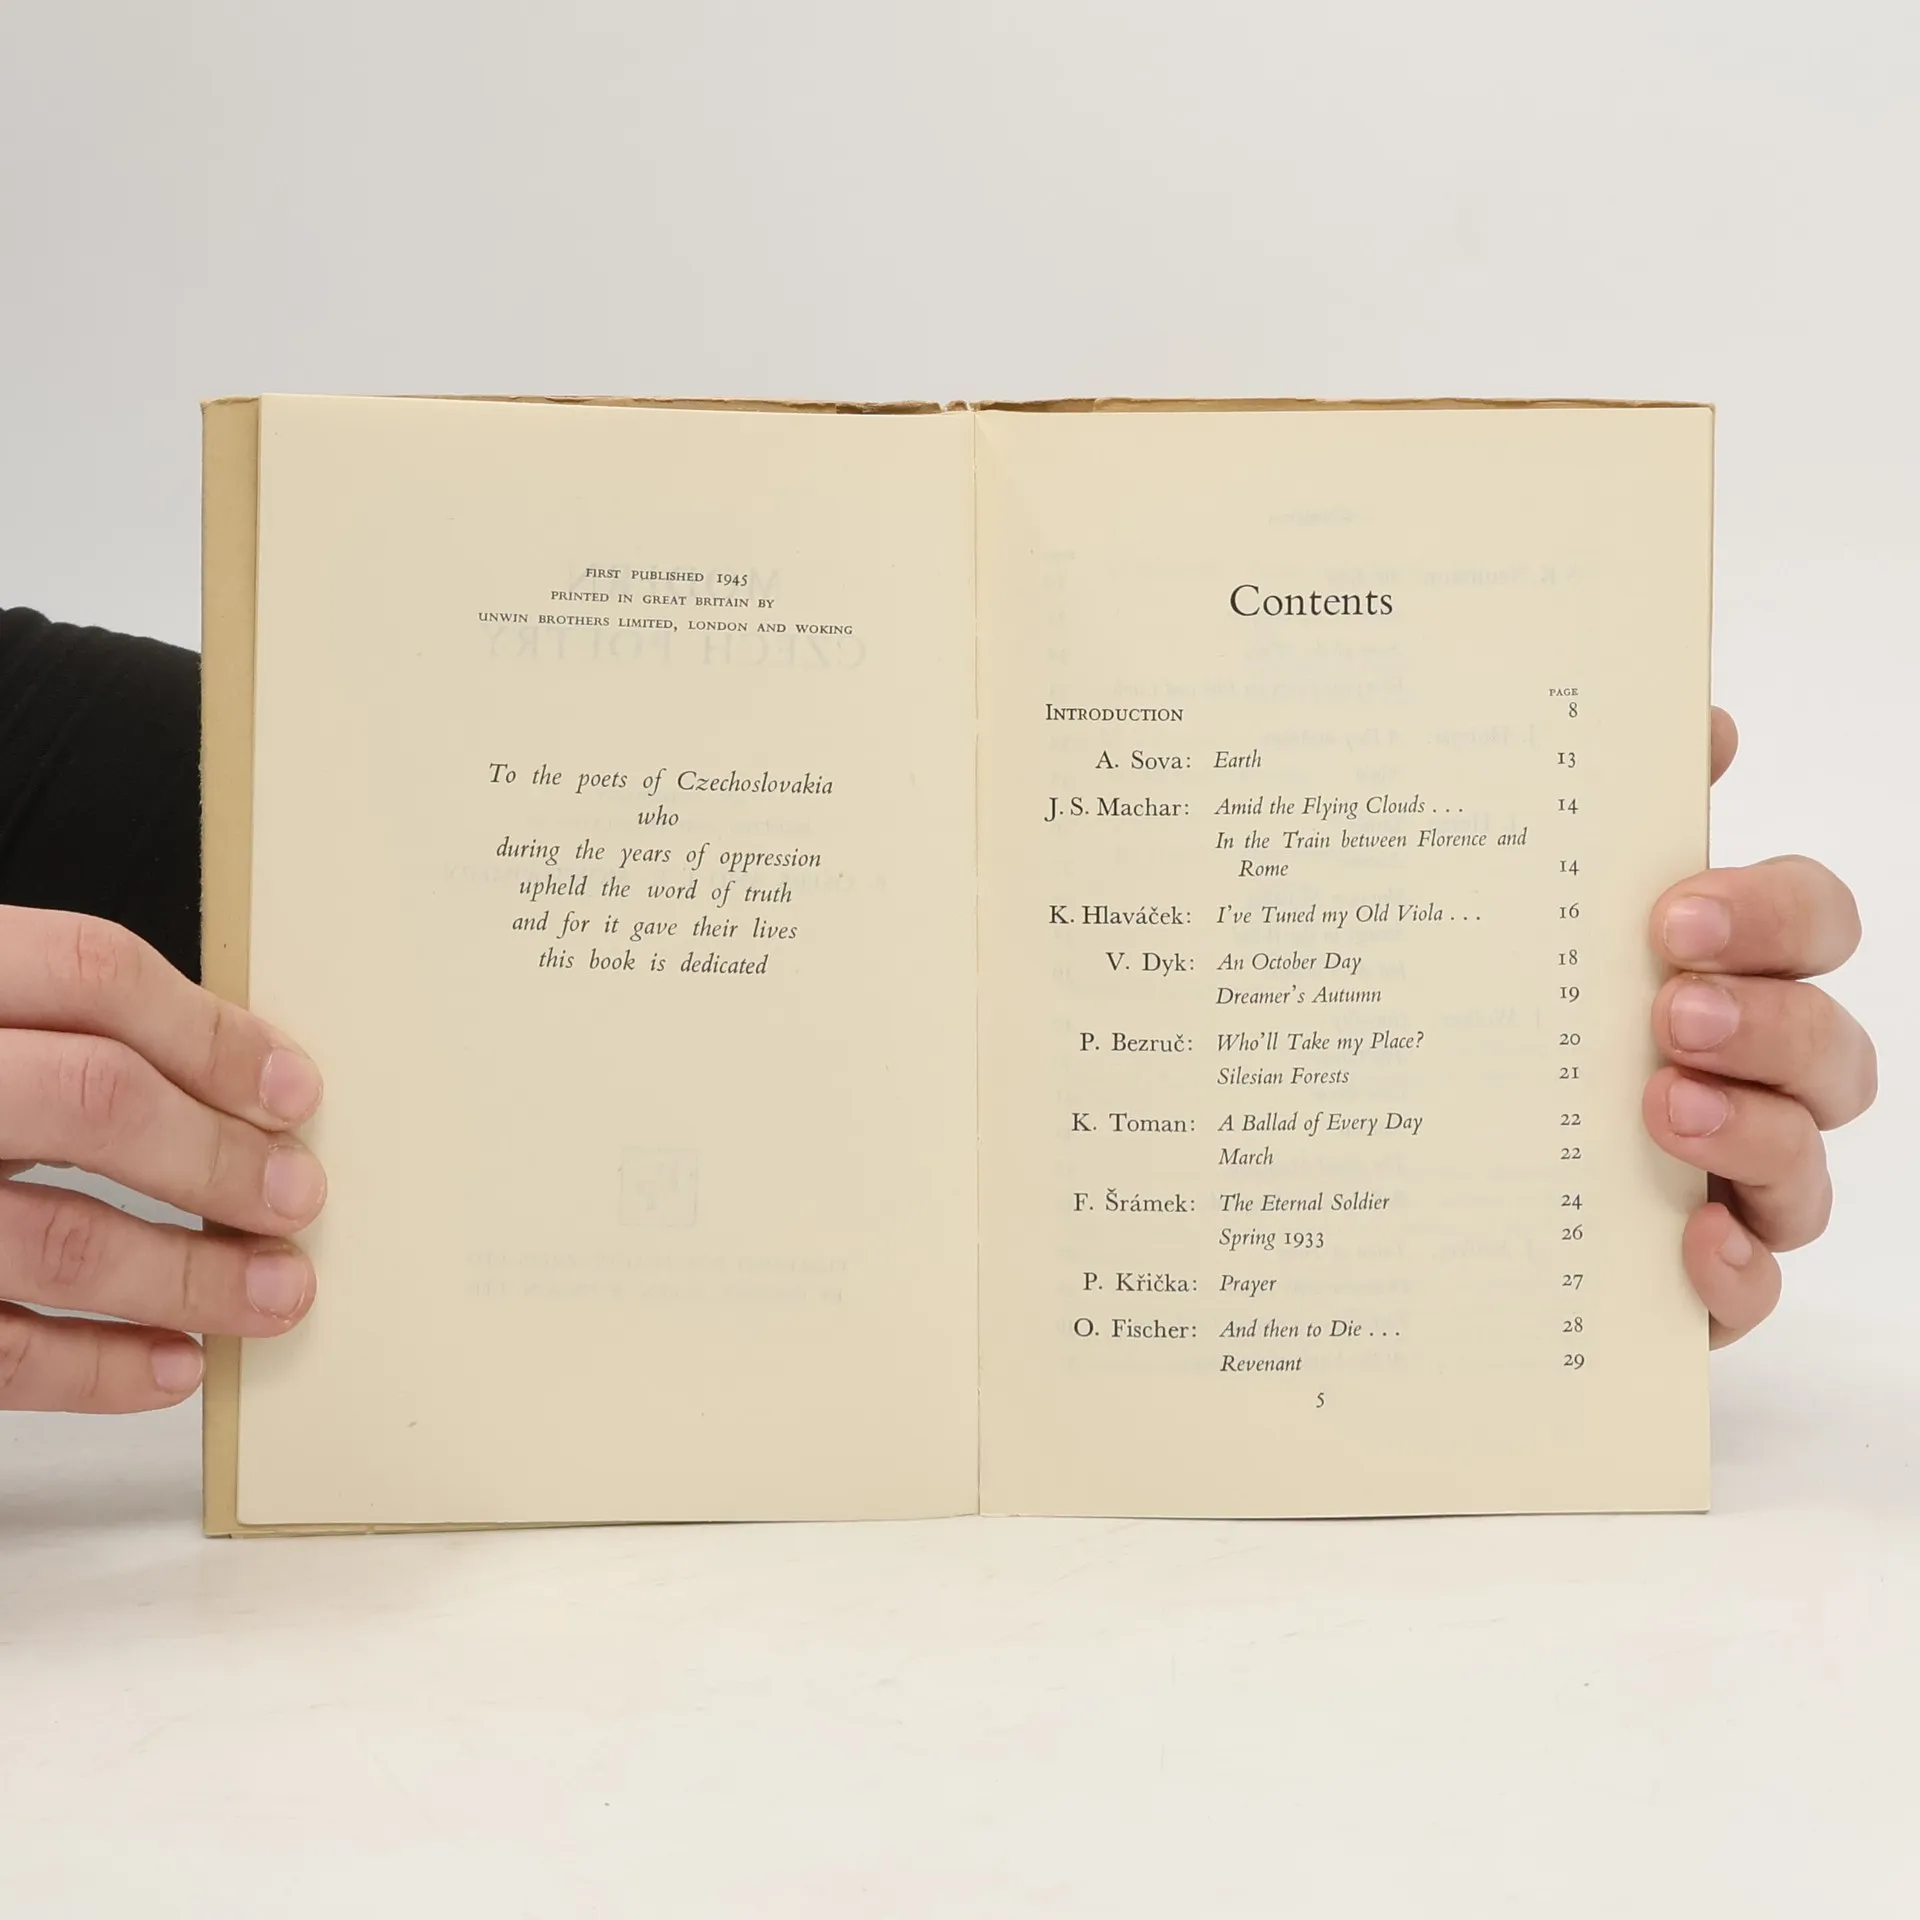 FIRST PUBLISHED 1945
PRINTED IN GREAT BRITAIN BY
UNWIN BROTHERS LIMITED, LONDON AND WOKING
To the poets of Czechoslovakia
who
during the years of oppression
upheld the word of truth
and for it gave their lives
this book is dedicated
Contents
PAGE
INTRODUCTION 8
A. Sova: Earth 13
J. S. Machar: Amid the Flying Clouds . . . 14
In the Train between Florence and
Rome 14
K. Hlaváček: I've Tuned my Old Viola . . . 16
V. Dyk: An October Day 18
Dreamer's Autumn 19
P. Bezruč: Who'll Take my Place? 20
Silesian Forests 21
K. Toman: A Ballad of Every Day 22
March 22
F. Šrámek: The Eternal Soldier 24
Spring 1933 26
P. Křička: Prayer 27
O. Fischer: And then to Die . . . 28
Revenant 29
5